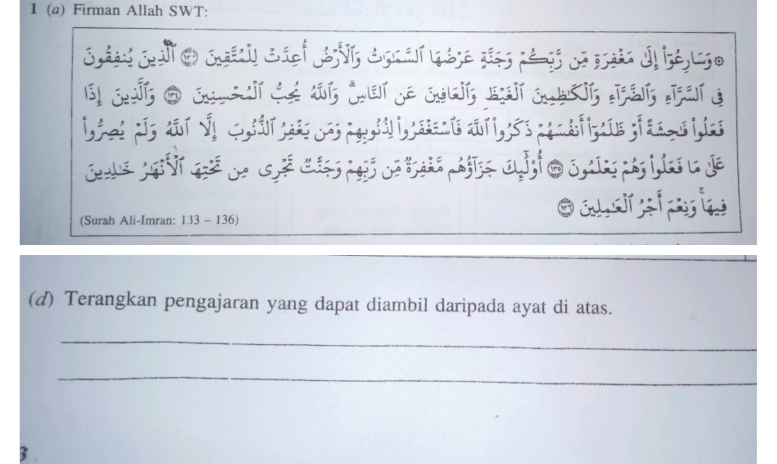 1 (a) Firman Allah SWT:
۞وَسَارِعُوٓاْ إِلَىٰ مَغْفِرَةٍ مِّن رَّبِّكُمْ وَجَنَّةٍ عَرْضُهَا ٱلسَّمَٰوَٰتُ وَٱلْأَرْضُ أُعِدَّتْ لِلْمُتَّقِينَ ۝١٣٣ ٱلَّذِينَ يُنفِقُونَ
فِي ٱلسَّرَّآءِ وَٱلضَّرَّآءِ وَٱلْكَٰظِمِينَ ٱلْغَيْظَ وَٱلْعَافِينَ عَنِ ٱلنَّاسِ ۗ وَٱللَّهُ يُحِبُّ ٱلْمُحْسِنِينَ ۝١٣٤ وَٱلَّذِينَ إِذَا
فَعَلُواْ فَٰحِشَةً أَوْ ظَلَمُوٓاْ أَنفُسَهُمْ ذَكَرُواْ ٱللَّهَ فَٱسْتَغْفَرُواْ لِذُنُوبِهِمْ وَمَن يَغْفِرُ ٱلذُّنُوبَ إِلَّا ٱللَّهُ وَلَمْ يُصِرُّواْ
عَلَىٰ مَا فَعَلُواْ وَهُمْ يَعْلَمُونَ ۝١٣٥ أُوْلَٰٓئِكَ جَزَآؤُهُم مَّغْفِرَةٌ مِّن رَّبِّهِمْ وَجَنَّٰتٌ تَجْرِي مِن تَحْتِهَا ٱلْأَنْهَٰرُ خَٰلِدِينَ
فِيهَا ۚ وَنِعْمَ أَجْرُ ٱلْعَٰمِلِينَ ۝١٣٦
(Surah Ali-Imran: 133 – 136)
(d) Terangkan pengajaran yang dapat diambil daripada ayat di atas.
3